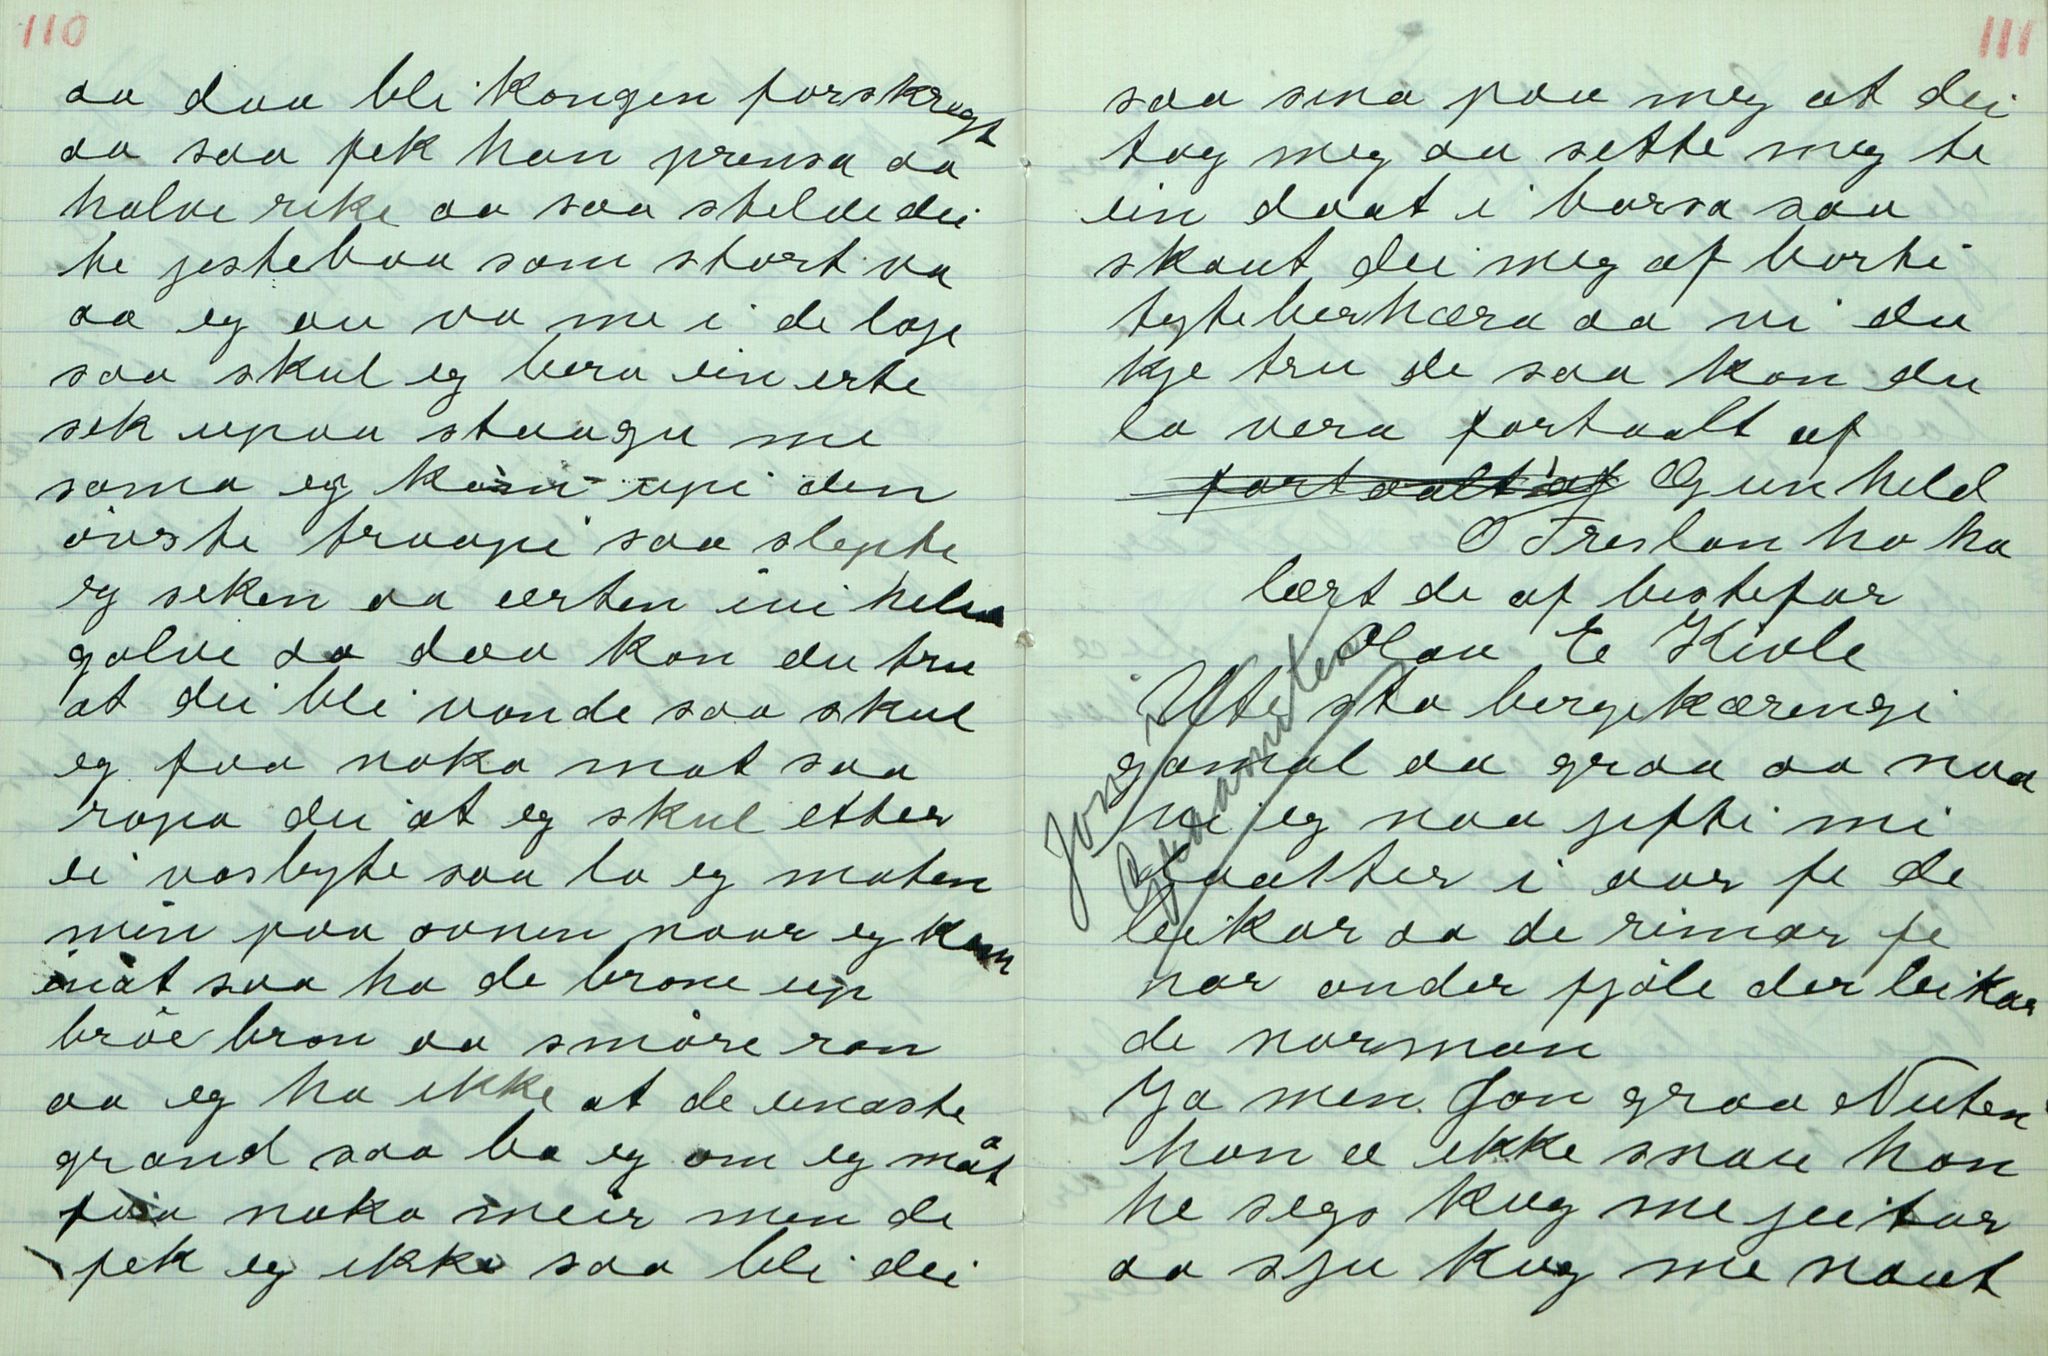 110
aa daa bli kongen forskregt
aa saa fek han prensa aa
halve rike aa saa stelde dei
te jestebaa som stort va
aa eg au va me i de laje
saa skul eg bera ein erte
sek upaa staagu me
sama eg kom upi den
övste traapi saa slepte
eg seken aa ærten ivi heile
golve aa daa kan du tru
at dei bli vonde saa skul
eg faa noko mat saa
ropa dei at eg skul etter
ei vasbyte saa la eg maten
min paa ovnen naar eg kam
inat saa ha de brone up
bröe bron aa smöre ran
aa eg ha ikke at de unaste
grand saa ba eg om eg måt
faa noko meir men de
fek eg ikke saa bli dei
111
saa sina paa meg at dei
tog meg aa sette meg te
ein daat i borsa saa
skaut dei meg af burti
tyteberhæra aa vi du
kje tru de saa kan du
la vera fortaalt af
fortaalt af Gunheld
O Treslan ho ha
lært de af bestefar
Olav E Kivle
Jon i
Graanuten
Ute sta bergekæringi
gamal aa graa aa naa
vi eg naa jifti mi
daatter i aar fe de
leikar aa de rimar fe
nor onder fjöle der leikar
de norman
Ja men Jon graa Nuten
han æ ikke snau han
he segs kug me jeitar
aa sju kug me naut